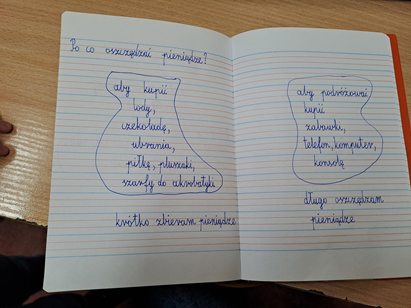 Po co oszczędzać pieniądze?
aby kupić
lody,
czekoladę,
ubrania,
piłkę, pluszaki,
szarfy do akrobatyki
krótko zbieram pieniądze
aby podróżować
kupić
zabawki,
telefon, komputer,
konsolę
długo oszczędzam
pieniądze